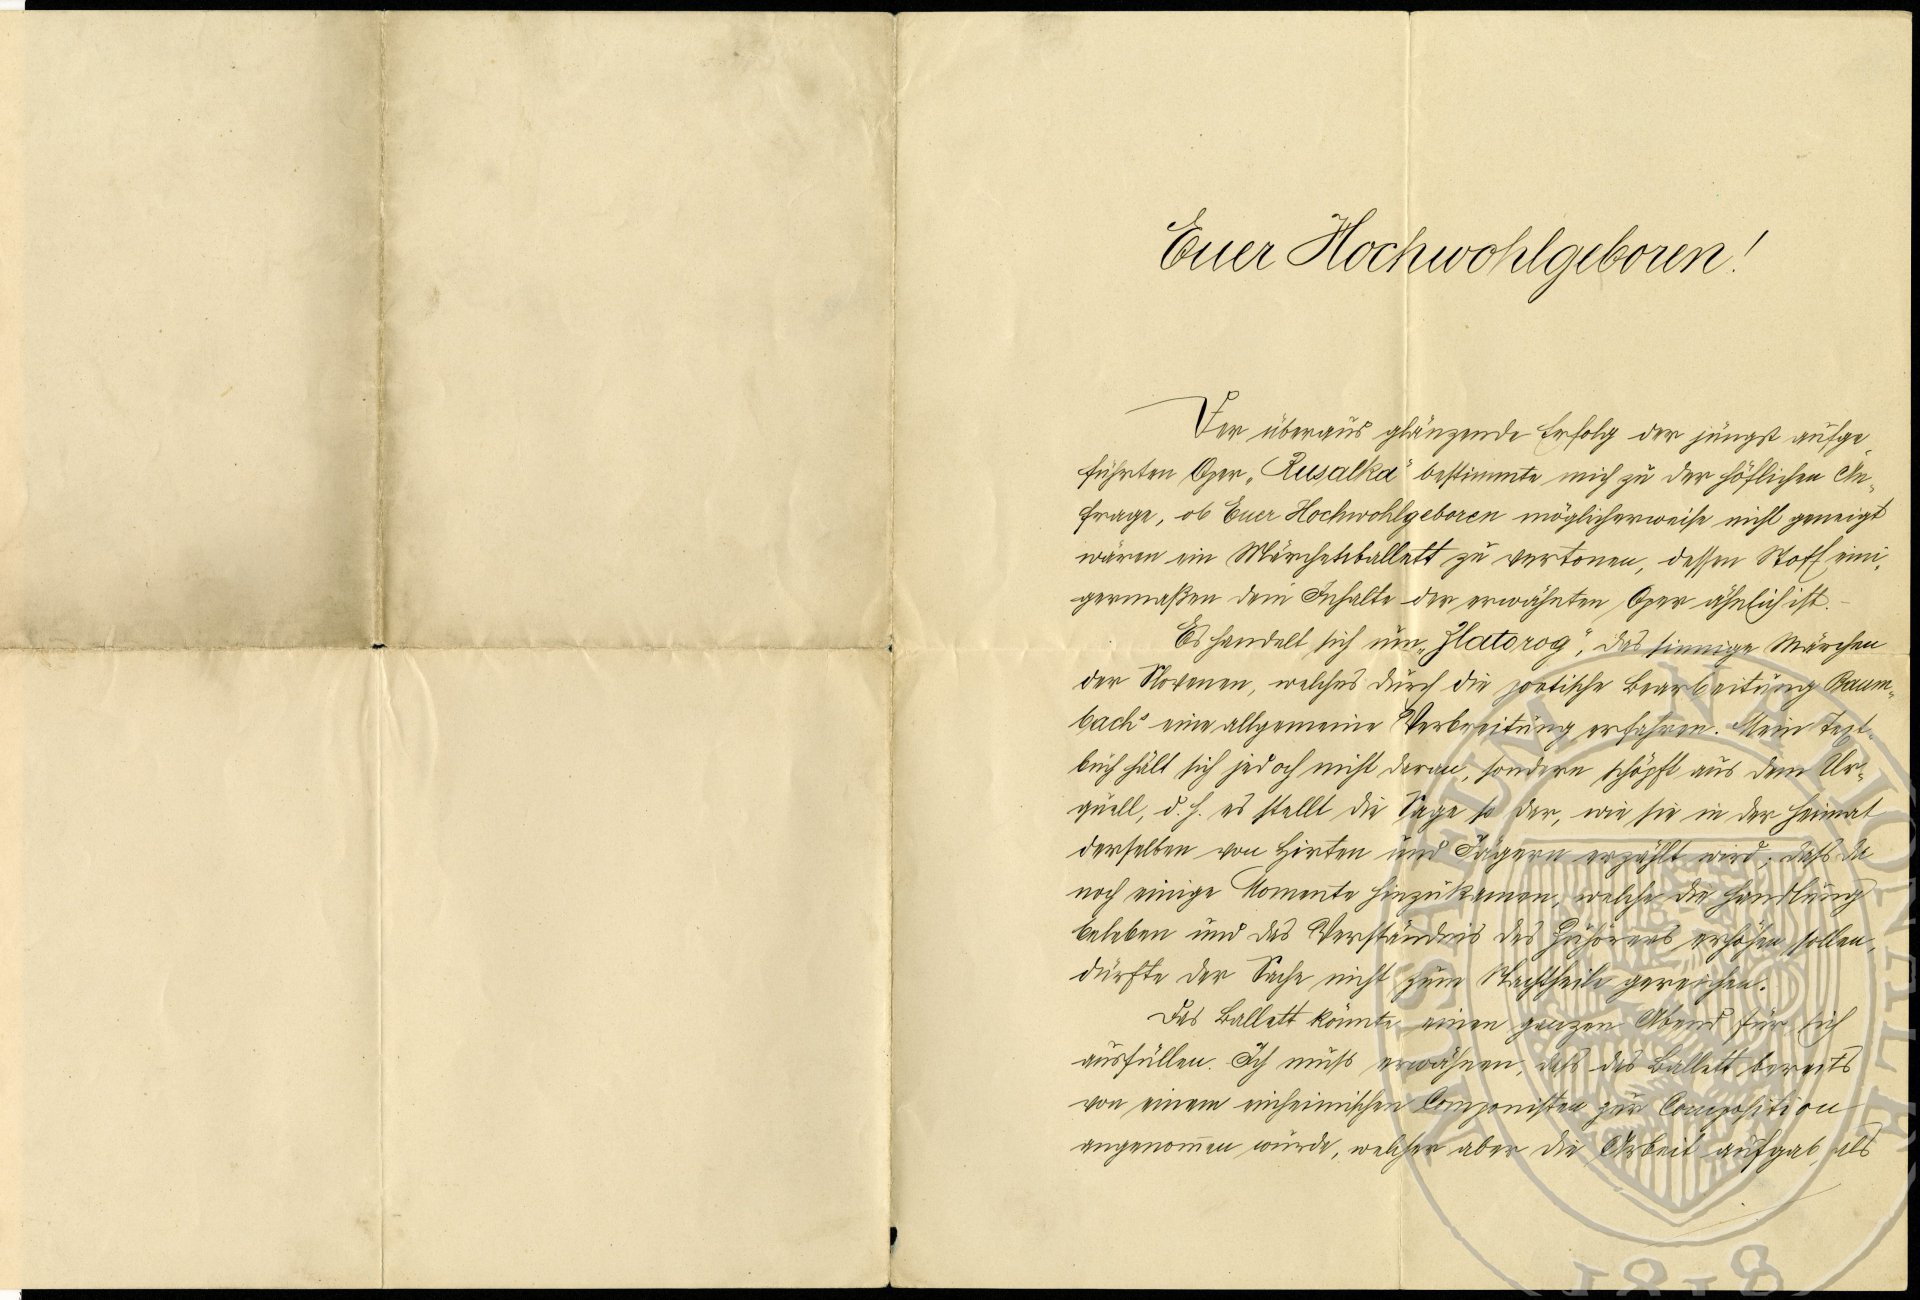 Euer Hochwohlgeboren!
Der überaus glänzende Erfolg der jüngst aufge-
führten Oper „Rusalka“ bestimmte mich zu der höflichen An-
frage, ob Euer Hochwohlgeboren möglicherweise nicht geneigt
wären ein Märchenballett zu vertonen, dessen Stoff eini-
germaßen dem Inhalte der erwähnten Oper ähnlich ist. –
Es handelt sich um „Zlatorog“, das sinnige Märchen
der Slovenen, welches durch die poetische Bearbeitung Baum-
bachs eine allgemeine Verbreitung erfahren. Mein Text-
buch hält sich jedoch nicht daran, sondern schöpft aus dem Ur-
quell, d. h. es stellt die Sage so dar, wie sie in der Heimat
derselben von Hirten und Jägern erzählt wird; dass da
noch einige Momente hinzukamen, welche die Handlung
beleben und das Verständnis des Zuhörers erhöhen sollen,
dürfte der Sache nicht zum Nachtheile gereichen.
Das Ballett könnte einen ganzen Abend für sich
ausfüllen. Ich muss erwähnen, dass das Ballett bereits
von einem einheimischen Componisten zur Composition
angenom̅en wurde, welcher aber die Arbeit aufgab, als
MUSAEUM NATIONALE
1818